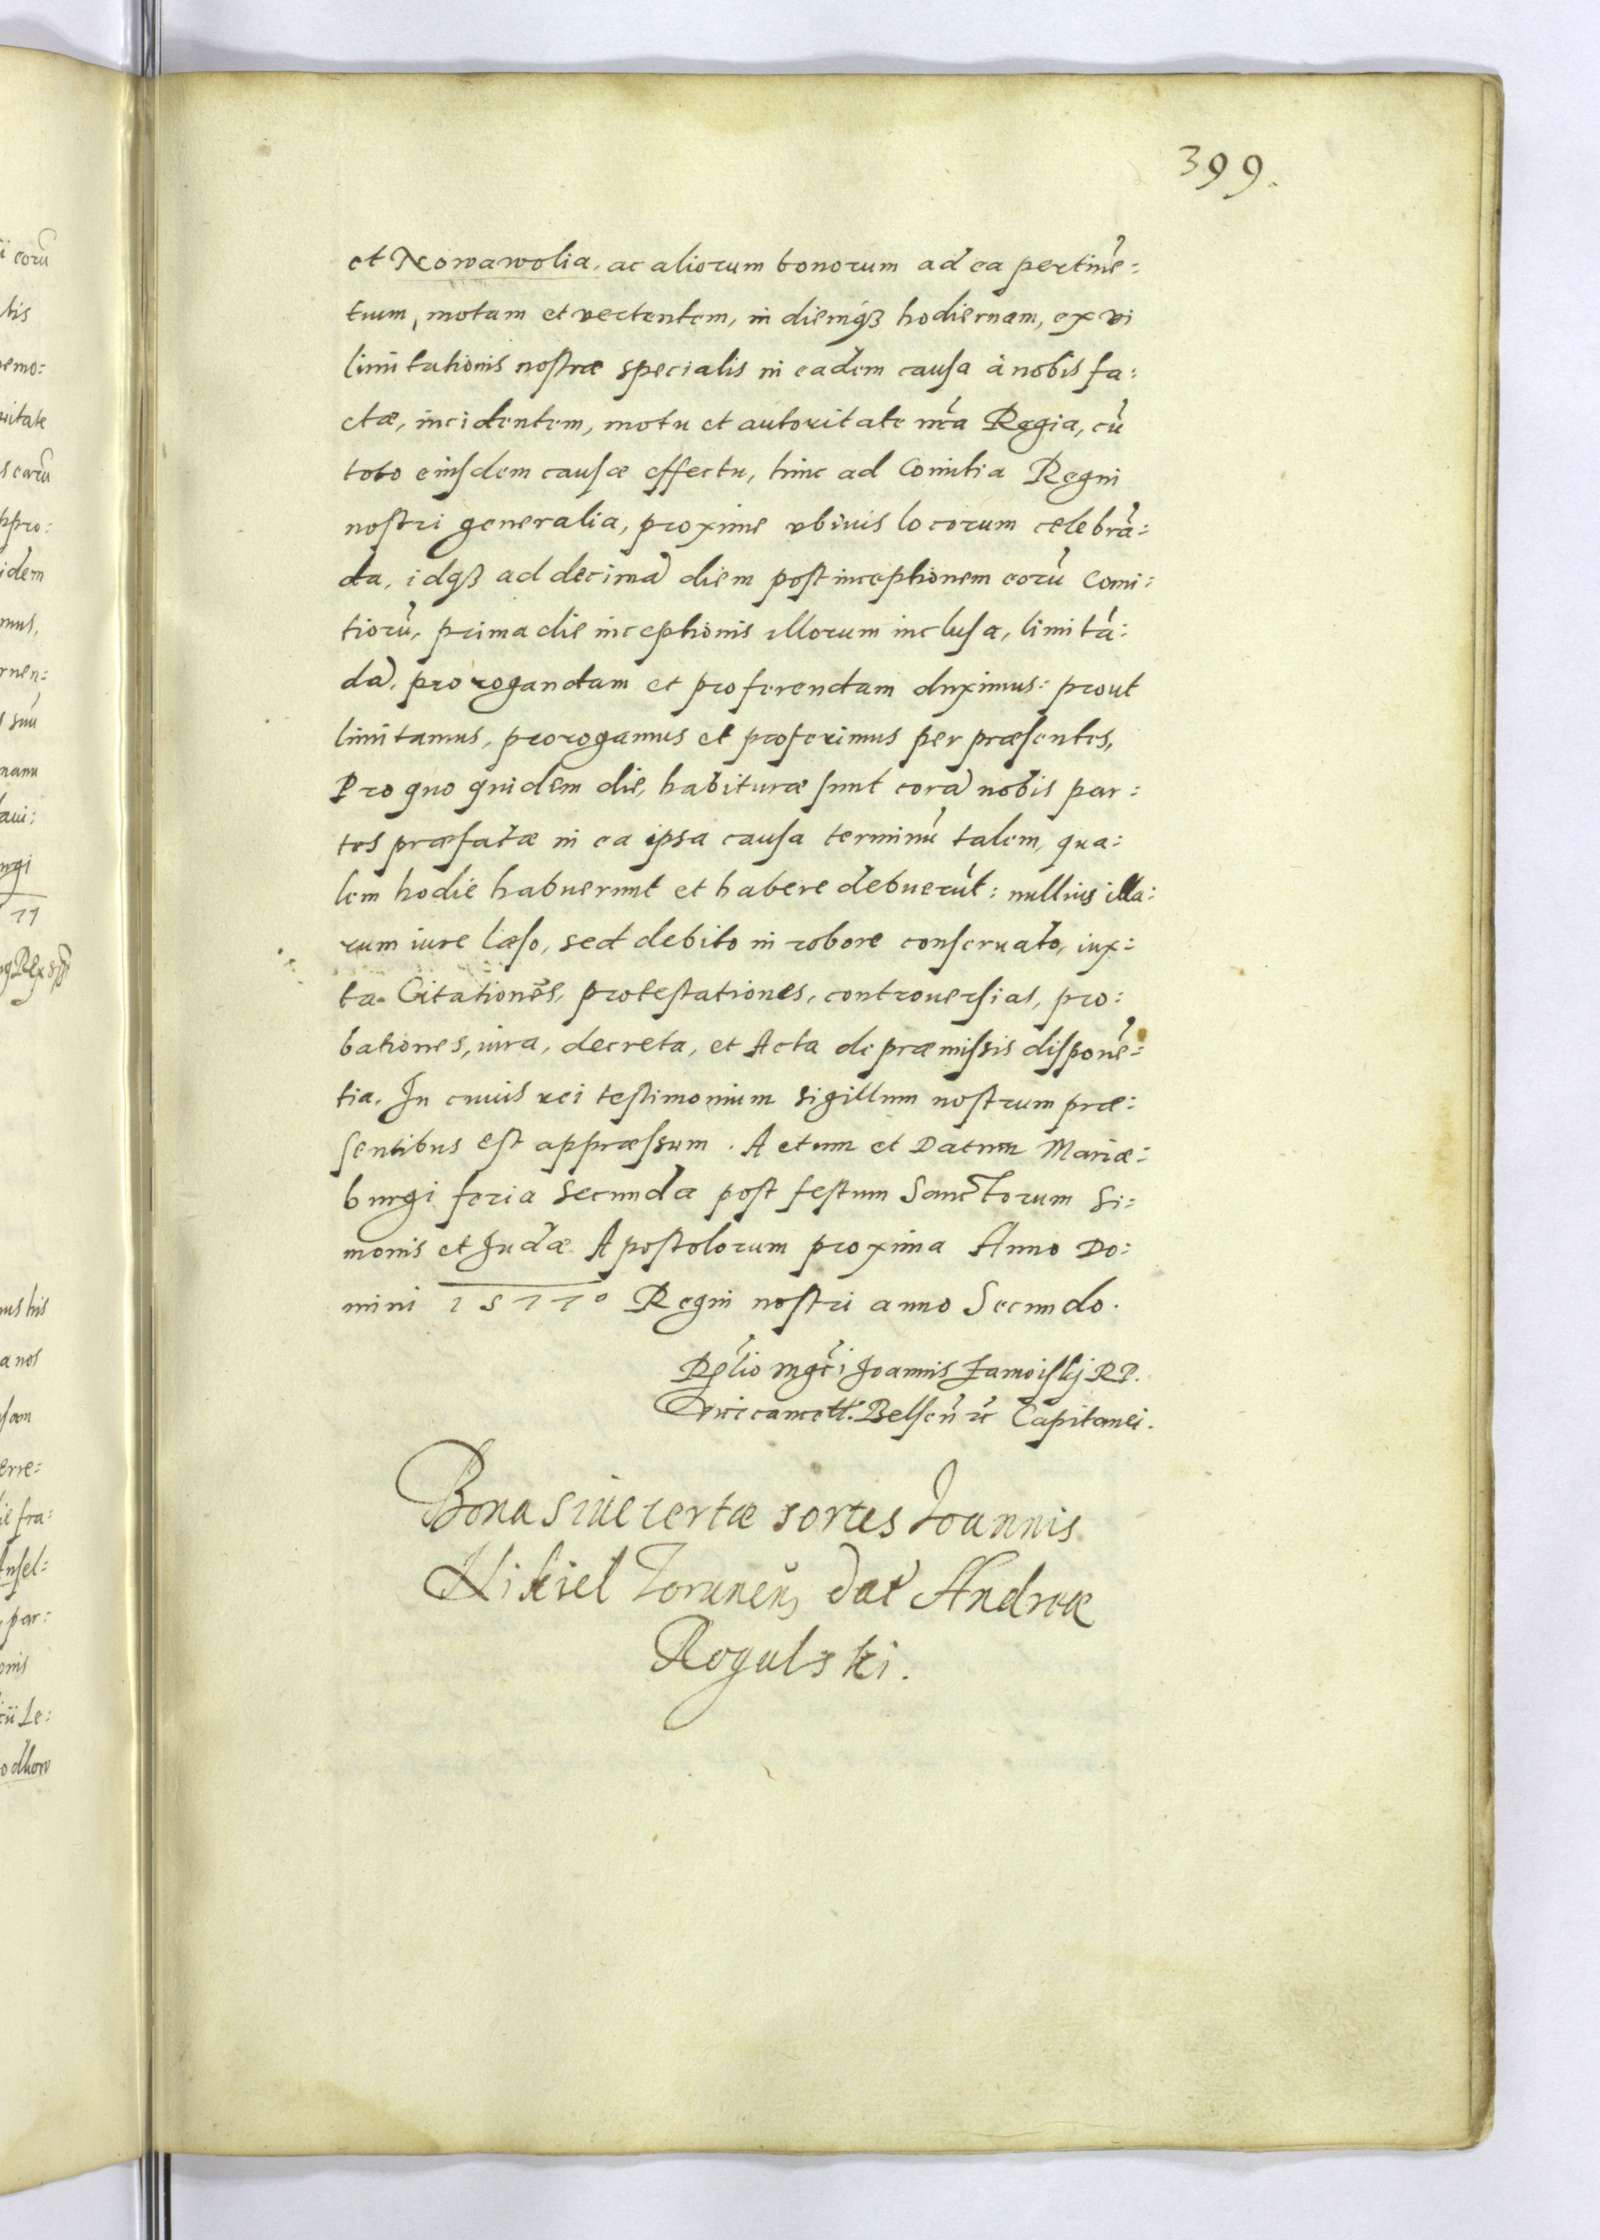 399.
et Nowawolia, ac aliorum bonorum ad ea pertinẽ:
tium, motam et vertentem, in diemq́ꝫ hodiernam, ex vi
limitationis nostræ specialis in eadem causa à nobis fa:
ctæ, incidentem, motu et autoritate nr̃a Regia, cũ
toto eiusdem causæ effectu, hinc ad Comitia Regni
nostri generalia, proxime vbiuis locorum celebrã:
da, idqꝫ ad decimã diem post inceptionem eorũ Comi:
tiorũ, prima die inceptionis illorum inclusa, limitã:
dã, prorogandam et proferendam duximus: prout
limitamus, prorogamus et proferimus per præsentes,
Pro quo quidem die, habituræ sunt corã nobis par:
tes præfatæ in ea ipsa causa terminũ talem, qua:
lem hodie habuerunt et habere debuerũt: nullius illa:
rum iure læso, sed debito in robore conseruato, iux:
ta Citationẽs, protestationes, controuersias, pro:
bationes, iura, decreta, et Acta de præmissis disponẽ:
tia. In cuius rei testimonium sigillum nostrum præ:
sentibus est appræssum. Actum et Datum Mariæ:
burgi feria Secunda post festum Sanctorum Si:
monis et Judæ Apostolorum proxima Anno Do:
mini 1577° Regni nostri anno Secundo.
Rel̃io Mgc̃i Joannis Zamoiskij R P.
Vicecancell. Belsen̄ zc̃ Capitanei.
Bona siue certæ sortes Joannis
Nikiel Torunen̄, dat Andreæ
Rogulski.